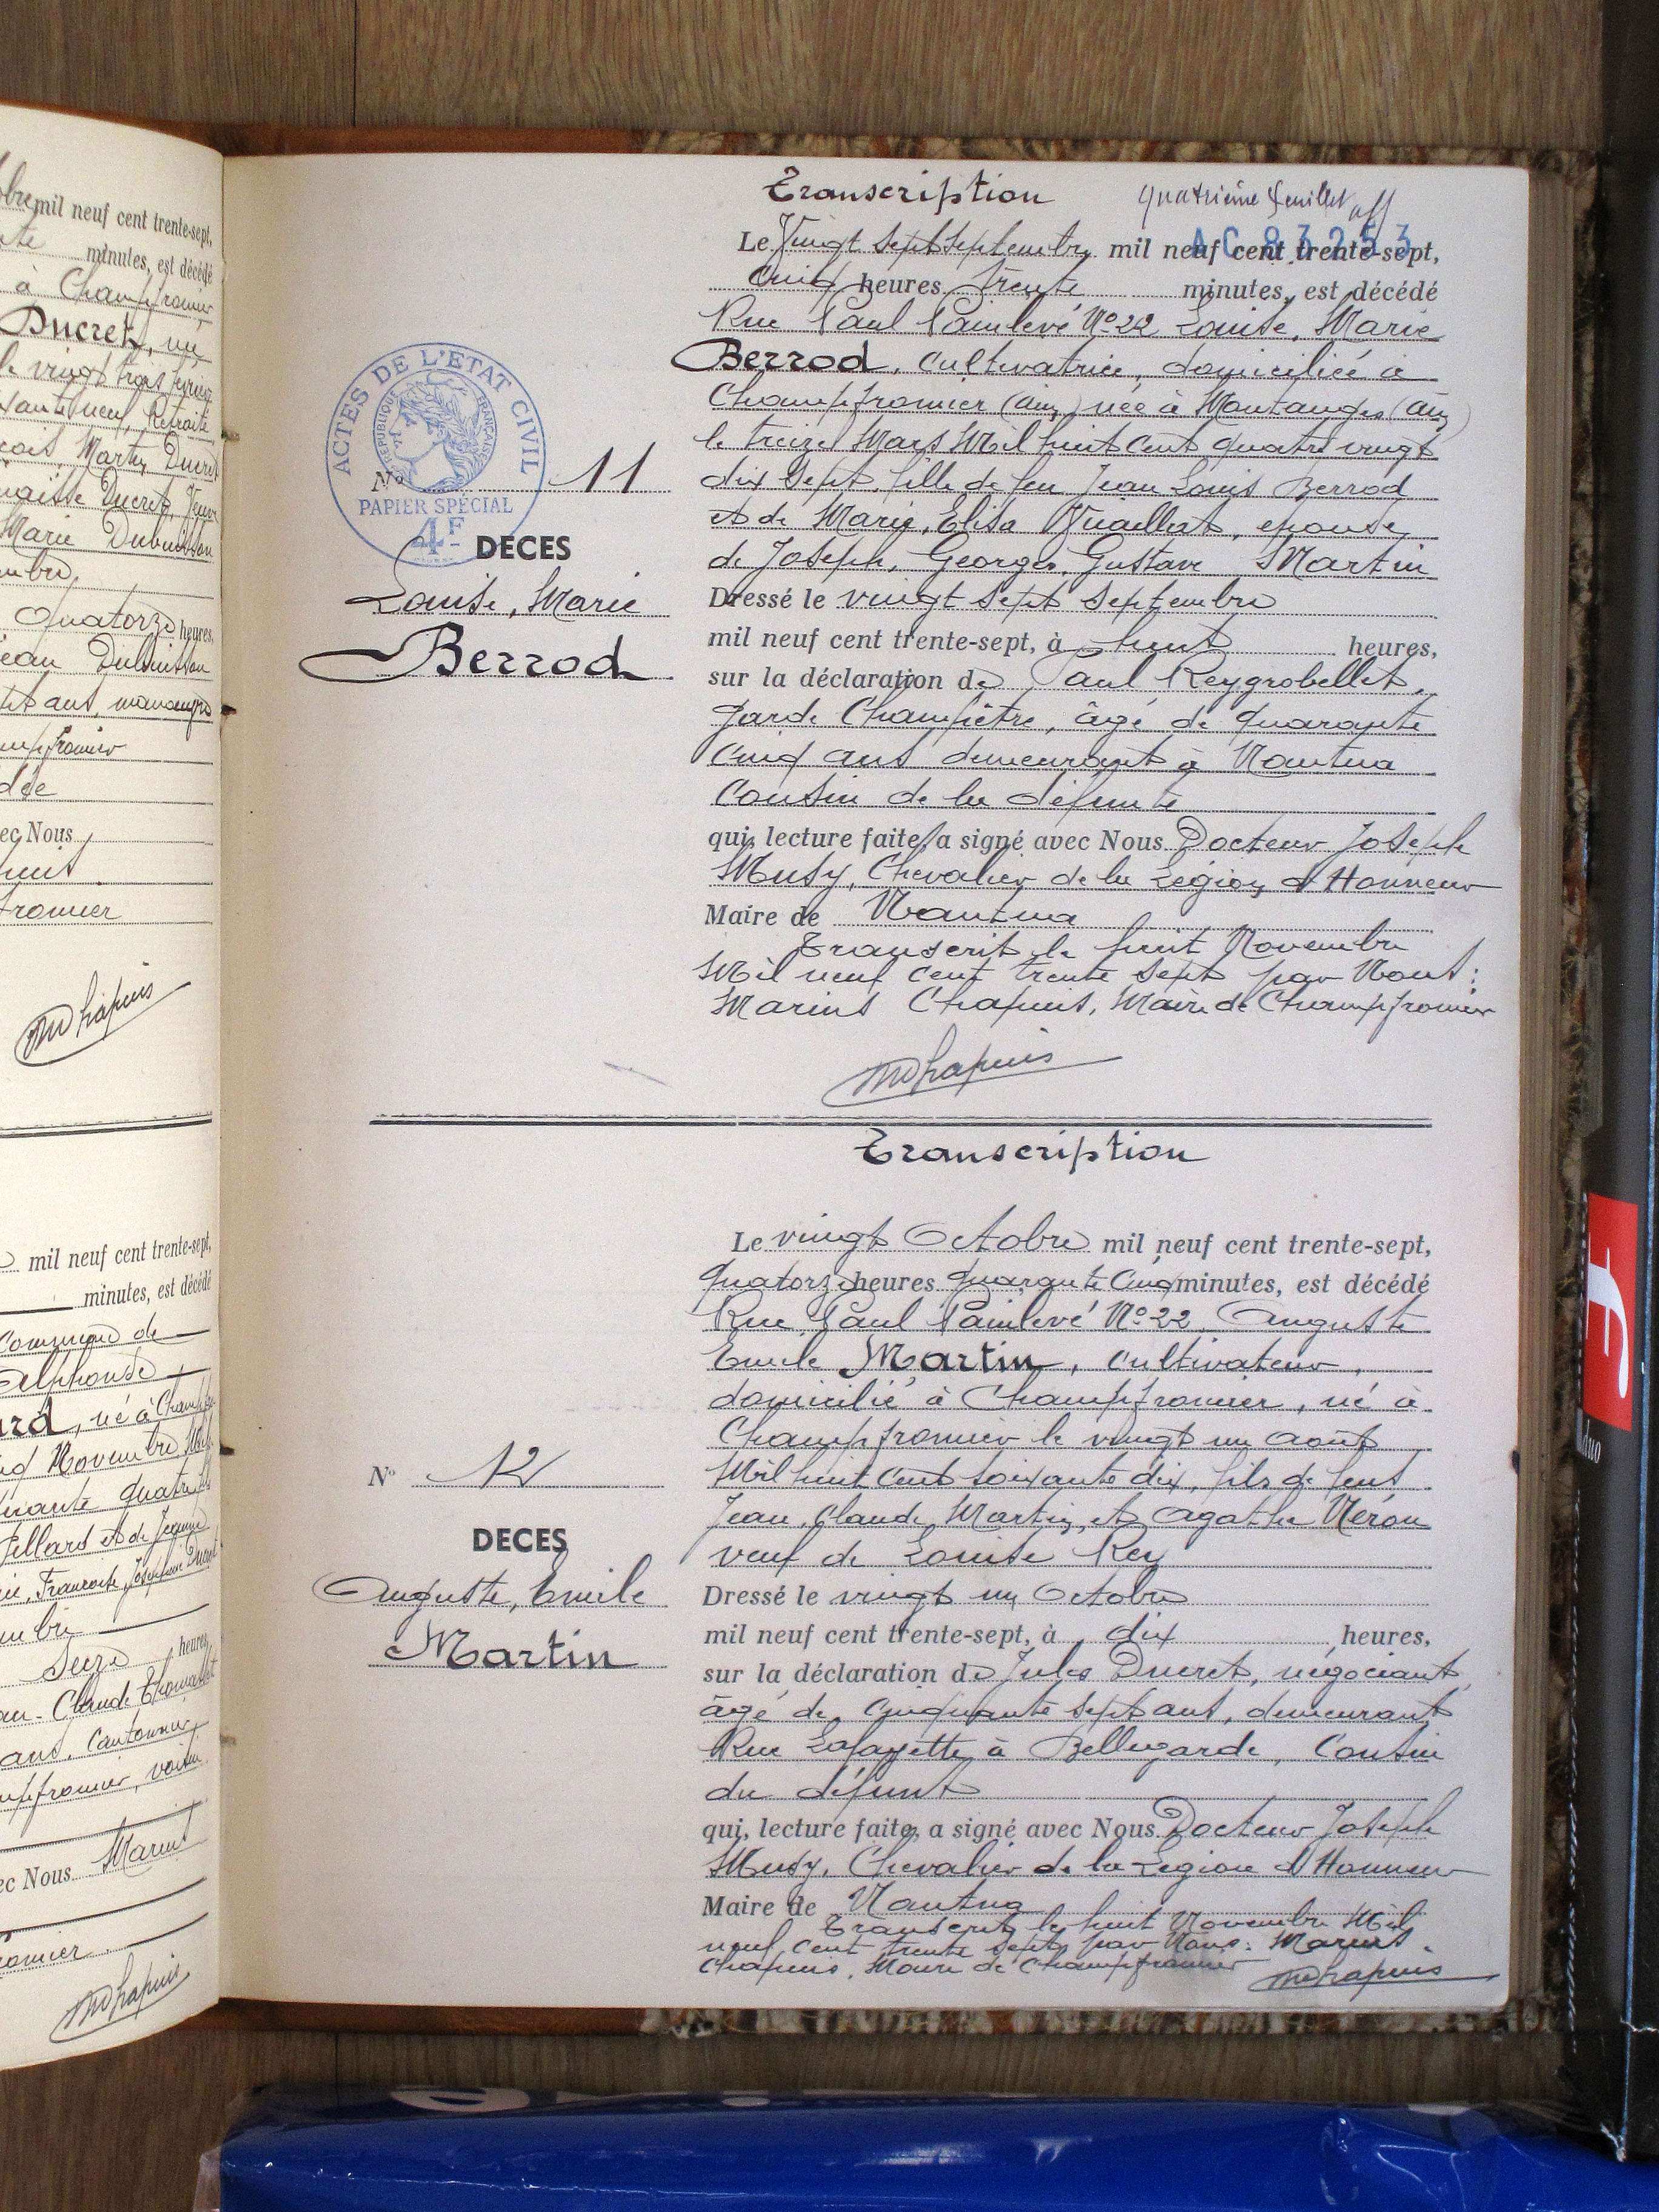 bre mil neuf cent trente-sept,
minutes, est décédé
à Champfromier
Ducret, né
le vingt trois février
ante neuf, Retraité
Marie Dubuisson
Quatorze heures,
ean Dubuisson
ans, manoeuvre
ec Nous
romier
mChapuis
mil neuf cent trente-sept,
minutes, est décédé
Commune de
Alphonse
ard, né à
Novembre
Seize heures,
Claude
ans, Cantonnier
ec Nous Marius
mChapuis
Transcription
quatrième feuillet
AC 83253
Le Vingt Sept Septembre mil neuf cent trente-sept,
Cinq heures Trente minutes, est décédé
Rue Paul Painlevé No 22 Louise, Marie
Berrod, Cultivatrice, domiciliée à
Champfromier (Ain) née à Montanges (Ain)
le treize Mars Mil huit cent quatre vingt
dix Sept, fille de feu Jean Louis Berrod
et de Marie, Elisa Vuaillat, epouse
de Joseph, Georges, Gustave Martin
Dressé le vingt sept Septembre
mil neuf cent trente-sept, à huit heures,
sur la déclaration de Paul Reygrobellet,
Garde Champêtre, âgé de quarante
Cinq ans demeurant à Nantua
Cousin de la défunte
qui, lecture faite, a signé avec Nous Docteur Joseph
Musy, Chevalier de la Légion d'Honneur
Maire de Nantua
Transcrit le huit Novembre
Mil neuf cent trente Sept par Nous:
Marius Chapuis, Maire de Champfromier
mChapuis
ACTES DE L'ETAT CIVIL
REPUBLIQUE FRANÇAISE
PAPIER SPECIAL
4F
No 11
DECES
Louise, Marie
Berrod
Transcription
Le vingt Octobre mil neuf cent trente-sept,
Quatorze heures Quarante Cinq minutes, est décédé
Rue Paul Painlevé No 22, Auguste
Emile Martin, Cultivateur,
domicilié à Champfromier, né à
Champfromier le vingt un Août
Mil huit Cent Soixante dix, fils de feus
Jean, Claude, Martin et Agathe Néron
veuf de Louise Rey
Dressé le vingt un Octobre
mil neuf cent trente-sept, à dix heures,
sur la déclaration de Jules Ducret, négociant
âgé de Cinquante Sept ans, demeurant
Rue Lafayette à Bellegarde, Cousin
du défunt
qui, lecture faite, a signé avec Nous Docteur Joseph
Musy, Chevalier de la Légion d'Honneur
Maire de Nantua
Transcrit le huit Novembre Mil
neuf cent trente sept par Nous: Marius
Chapuis, Maire de Champfromier mChapuis
No 12
DECES
Auguste, Emile
Martin